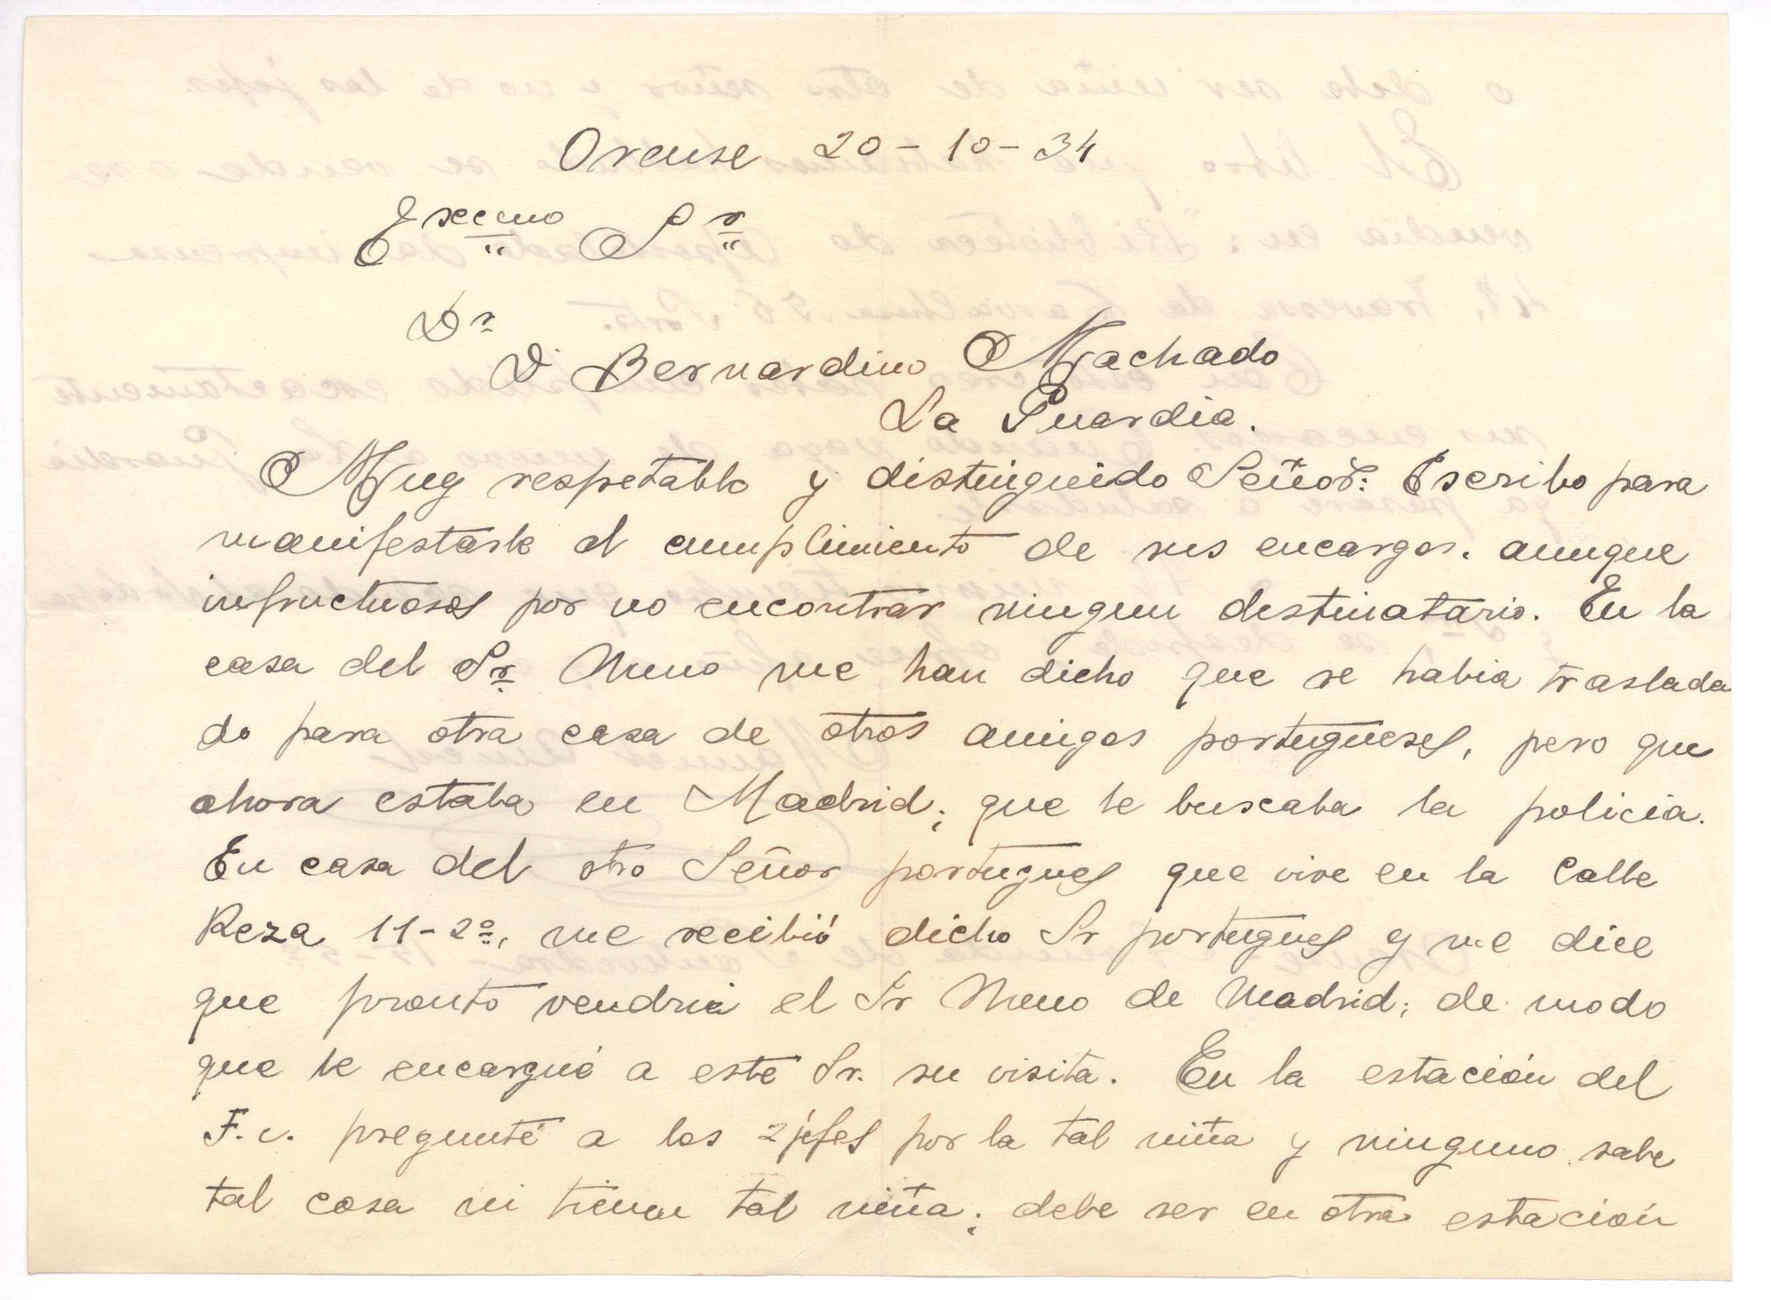 Orense 20-10-34
Excmo Sr
Dr
D. Bernardino Machado
La Guardia.
Muy respetable y distinguido Señor: Escribo para
manifestarle el cumplimiento de sus encargos. aunque
infructuosos por no encontrar ningun destinatario. En la
casa del Sr. Nuno me han dicho que se habia traslada
do para otra casa de otros amigos portugueses, pero que
ahora estaba en Madrid; que le buscaba la policia.
En casa del otro Señor portugues que vive en la Calle
Reza 11-2º, me recibió dicho Sr portugues y me dice
que pronto vendria el Sr Nuno de Madrid; de modo
que le encargué a este Sr. su visita. En la estación del
F.c. pregunté a los 2 jefes por la tal niña y ninguno sabe
tal cosa ni tienen tal niña; debe ser en otra estación